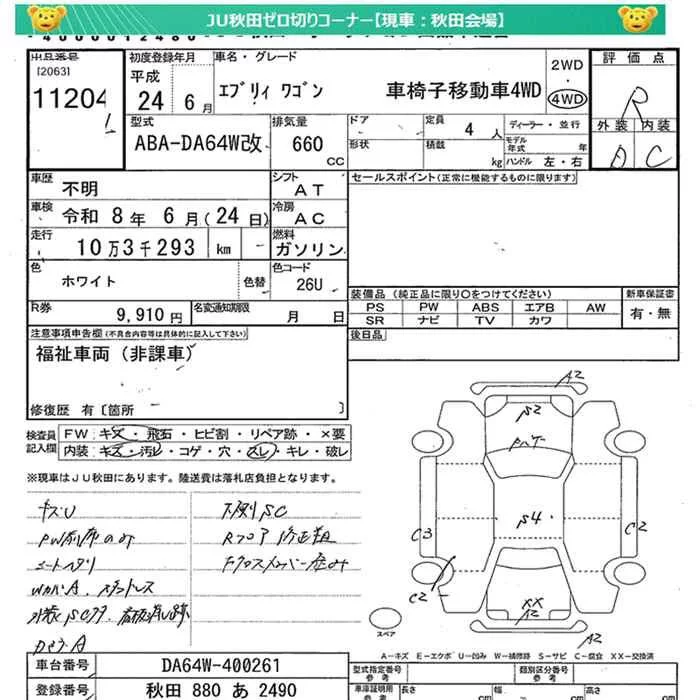 JU秋田ゼロ切りコーナー【現車：秋田会場】
出品番号
[2063]
11204
初度登録年月
平成
24 6月
車名・グレード
エブリィ ワゴン 車椅子移動車4WD
2WD
・
4WD
評価点
R
外装 内装
D C
型式
ABA-DA64W改
排気量
660
CC
ドア
形状
定員 4 人
積載 kg
ディーラー・並行
モデル年式 年
ハンドル 左・右
車歴 不明
シフト AT
車検 令和 8年 6月(24日)
冷房 AC
走行 10万3千293 km
燃料 ガソリン
色 ホワイト 色替
色コード 26U
R券 9,910円
名変通知期限 月 日
セールスポイント(正常に機能するものに限ります)
装備品 (純正品に限り○をつけてください)
PS PW ABS エアB AW
SR ナビ TV カワ
新車保証書
有・無
後日品
注意事項申告欄(不具合内容等は具体的に記入して下さい)
福祉車両(非課車)
修復歴 有〔箇所 〕
検査員記入欄
FW:キズ・飛石・ヒビ割・リペア跡・×要
内装:キズ・汚レ・コゲ・穴・スレ・キレ・破レ
※現車はJU秋田にあります。陸送費は落札店負担となります。
キズU
下廻りSC
Rフロア 修正粗
シートヘタリ
WカバA
A2
S2
S4
C3
C2
C2
XX
A2
A2
スペア
A－キズ E－エクボ U－凹み W－補修跡 S－サビ C－腐食 XX－交換済
車台番号 DA64W-400261
登録番号 秋田 880 あ 2490
型式指定番号
参考
類別区分番号
参考
車庫証明用
参考
長さ cm
幅 cm
高さ cm